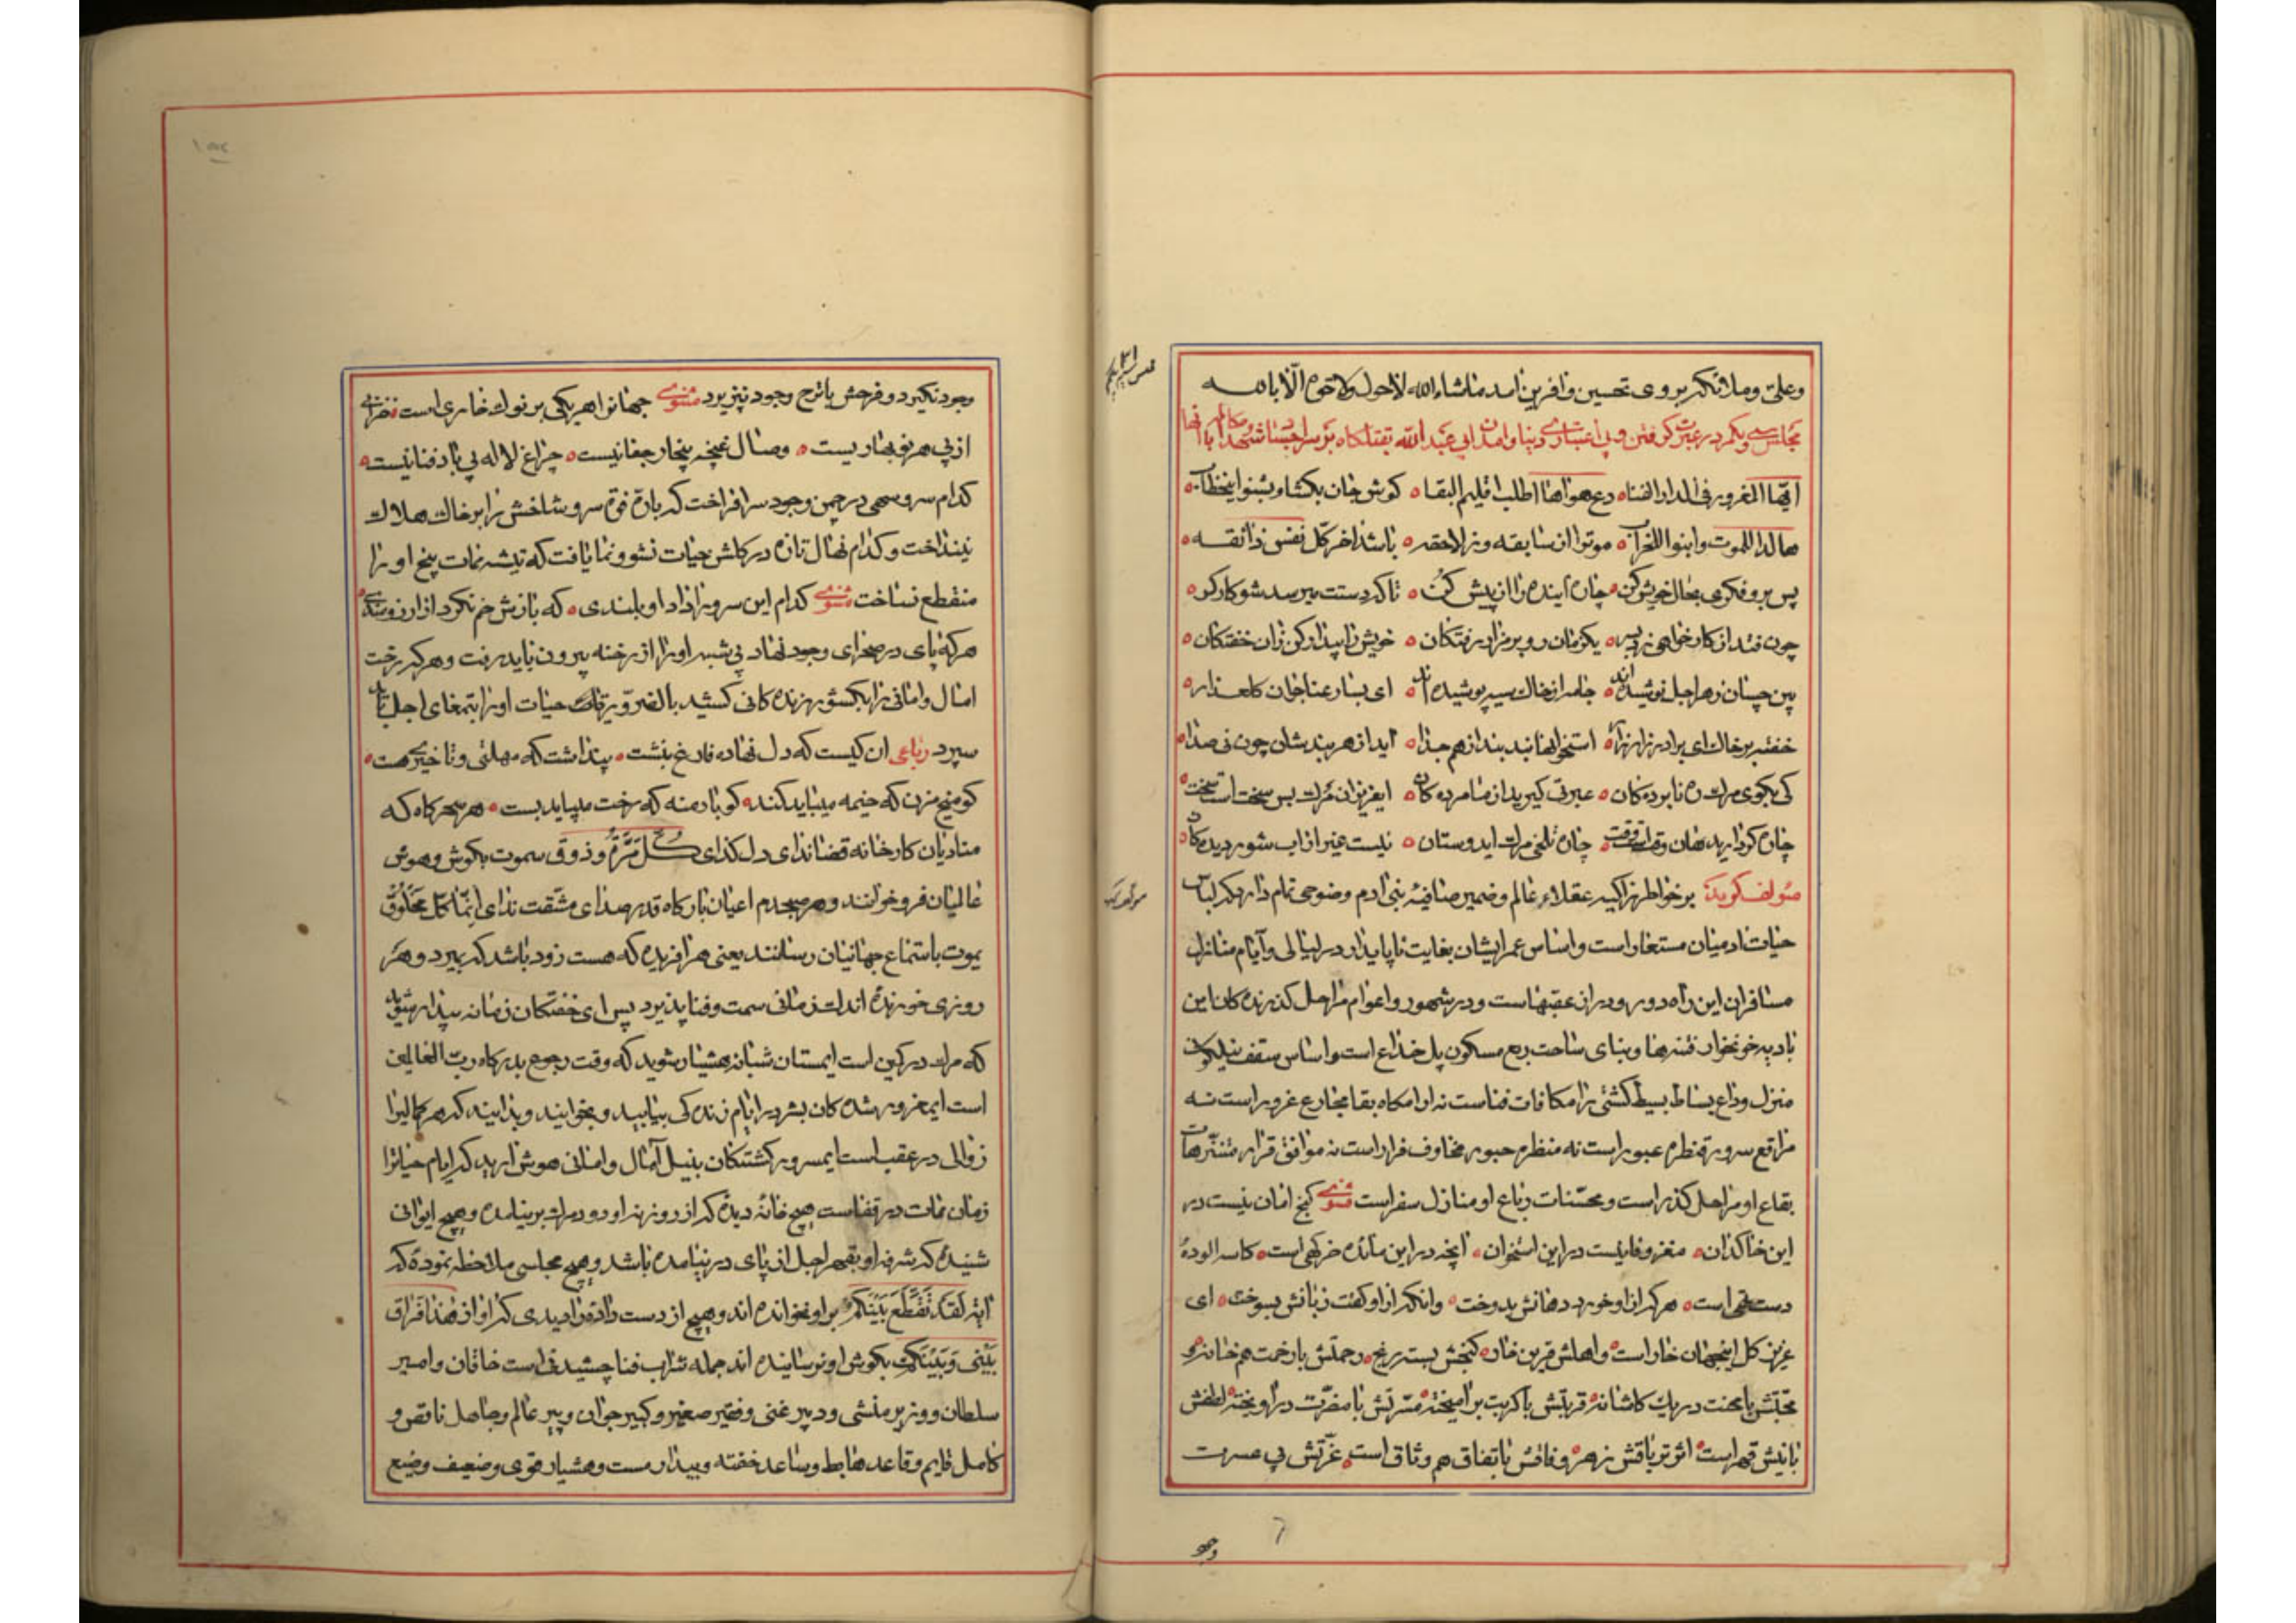 وعلی وملائکه بروی تحسین وافرین امد ماشاءالله لاحول ولا قوة الّا بالله
مجلس سی ویکم در عبرت کرفتن و بی اعتباری دنیا وامدن ابی عبدالله بقتلکاه بر سر اجساد شهدا
ایّها المغرور فی الدار الفنا دع هواها اطلب اقلیم البقا کوش جان بکشا وبشنو اینخطاب
لدوا للموت وابنوا للخراب موتوا ان سابقه ور لاحقه باشد اخر کلّ نفس ذائقه
پس برو فکری بحال خویش کن چاره اینده را از پیش کن تا که دستت میرسد شو کارکر
چون فتد از کار خواهی زد بسر یکزمان رو بر مزار رفتکان خویش را بیدار کن زان خفتکان
بین چسان زهر اجل نوشیده‌اند جامه از خاک سیه پوشیده‌اند ای بسا رعنا جوان کلعذار
خفته بر خاک ای برادر زار زار استخوانها بند بند از هم جدا اید از هر بندشان چون نی صدا
کی بکوی مرک ره نابرده‌کان عبرتی کیرید از ما مرده‌کان ایعزیزان مرک بس سخت است سخت
چاره کو دارید هان وقتست وقت چاره تلخی مرک ایدوستان نیست غیر از اب شور دیده‌کان
مؤلف کوید بر خواطر زاکیه عقلاء عالم وضمیر صافیهٔ بنی ادم وضوحی تمام دارد که لباس
حیات ادمیان مستعار است واساس عمر ایشان بغایت ناپایدار در لیالی وآیام منازل
مسافران این راه دور ودراز عقبهاست ودر شهور واعوام مراحل کذرنده کان این
بادیه خونخوار فتنه‌ها وبنای ساحت ربع مسکون پل خداع است واساس سقف نیلکون
منزل وداع بساط بسیط کشتی را مکافات فناست نه ارامکاه بقا مخارع غرور است نه
مراقع سرور قنطره عبور است نه منظره حبور مخاوف فرار است نه موافق قرار متنزّهات
بقاع او مراحل کذر است ومحسّنات رباع او منازل سفر است مثنوی کنج امان نیست در
این خاکدان مغز وفا نیست در این استخوان انچه در این مائده خرکهی است کاسه الودهٔ
دست تهی است هر که از او خورد دهانش بدوخت وانکه از او کفت زبانش بسوخت ای
عزیز کل اینجهان خار است واهلش قرین خار کنجش بسته رنج رحمتش با رحمت هم خانه
محبّتش با محنت در یک کاشانه قربتش با کربت بر امیخته مسرّتش با مضرّت در اویخته لطفش
با نیش قهر است اثر تریاقش زهر وفاقش با نفاق هم وثاق است عزّتش بی عسرت
وجو
وجود نکیرد وفرحش با ترح وجود نپذیرد مثنوی جهانرا هر یکی بر نوک خاری است خزانی
از پی هر نو بهاریست وصال غنچه بیخار جفا نیست چراغ لاله بی باد فنا نیست
کدام سرو سهی در چمن وجود سر افراخت که سر وشاخش را بر خاک هلاک
نینداخت وکدام نهال تازه در کلشن حیات نشو ونما یافت که تیشه ممات بیخ او را
منقطع نساخت مثنوی کدام این سرو را داد او بلندی که بازش خم نکرد از
هر که پای در صحرای وجود نهاد بی شبهه او را از رخنه بیرون باید رفت وهر که رخت
امال وامانی را بکشور زنده کانی کشید بالضروره حیات او را بتمغای اجل باید
سپرد رباعی ان کیست که دل نهاده فارغ بنشت پنداشت که مهلتی وتاخیری هست
کو میخ مزن که خیمه میباید کند کو بار منه که رخت میباید بست هر سحرکاه که
منادیان کارخانه قضا ندای دل کدای کُلّ مَرَّةٍ وذوق سموت بکوش وهوش
عالمیان فرو خوانند وهر صبحدم اعیان بارکاه قدر صدای مشقت ندای اِنَّما کُلّ مَخلوقٍ
یموت باستماع جهانیان رسانند یعنی هر افریده که هست زود باشد که بمیرد وهر
روزی خورنده اندک زمانی سمت وفنا پذیرد پس ای خفتکان زمانه بیدار شوید
که مرک در کمین است ایمستان شبانه هشیار شوید که وقت رجوع بدرکاه ربّ العالمین
است ایمغرور شده کان بشر در ایام زنده کی بیایید وبخوانید وبدانید که هر کمالیرا
زوالی در عقب است ایمسرور کشتکان بنیل آمال وامانی هوش ارید که ایام حیاترا
زمان ممات در قفاست هیچ خانه دیده که از روزنه او دود مرک بر نیامده وهیچ ایوانی
شنیده که شرفه او بقهر اجل از پای در نیامده باشد وهیچ مجلسی ملاحظه نموده که
ایه لَقَد تَقَطَّعَ بَینَکُم بر او نخوانده اند وهیچ از دست داده را دیدی که اواز هٰذا فِراق
بَینی وَبَینَک بکوش او نرسانیده اند جمله شراب فنا چشیدنی است خاقان وامیر
سلطان ووزیر منشی ودبیر غنی وفقیر صغیر وکبیر جوان وپیر عالم وجاهل ناقص و
کامل قایم وقاعد هابط وساعد خفته وبیدار مست وهشیار قوی وضعیف وضیع